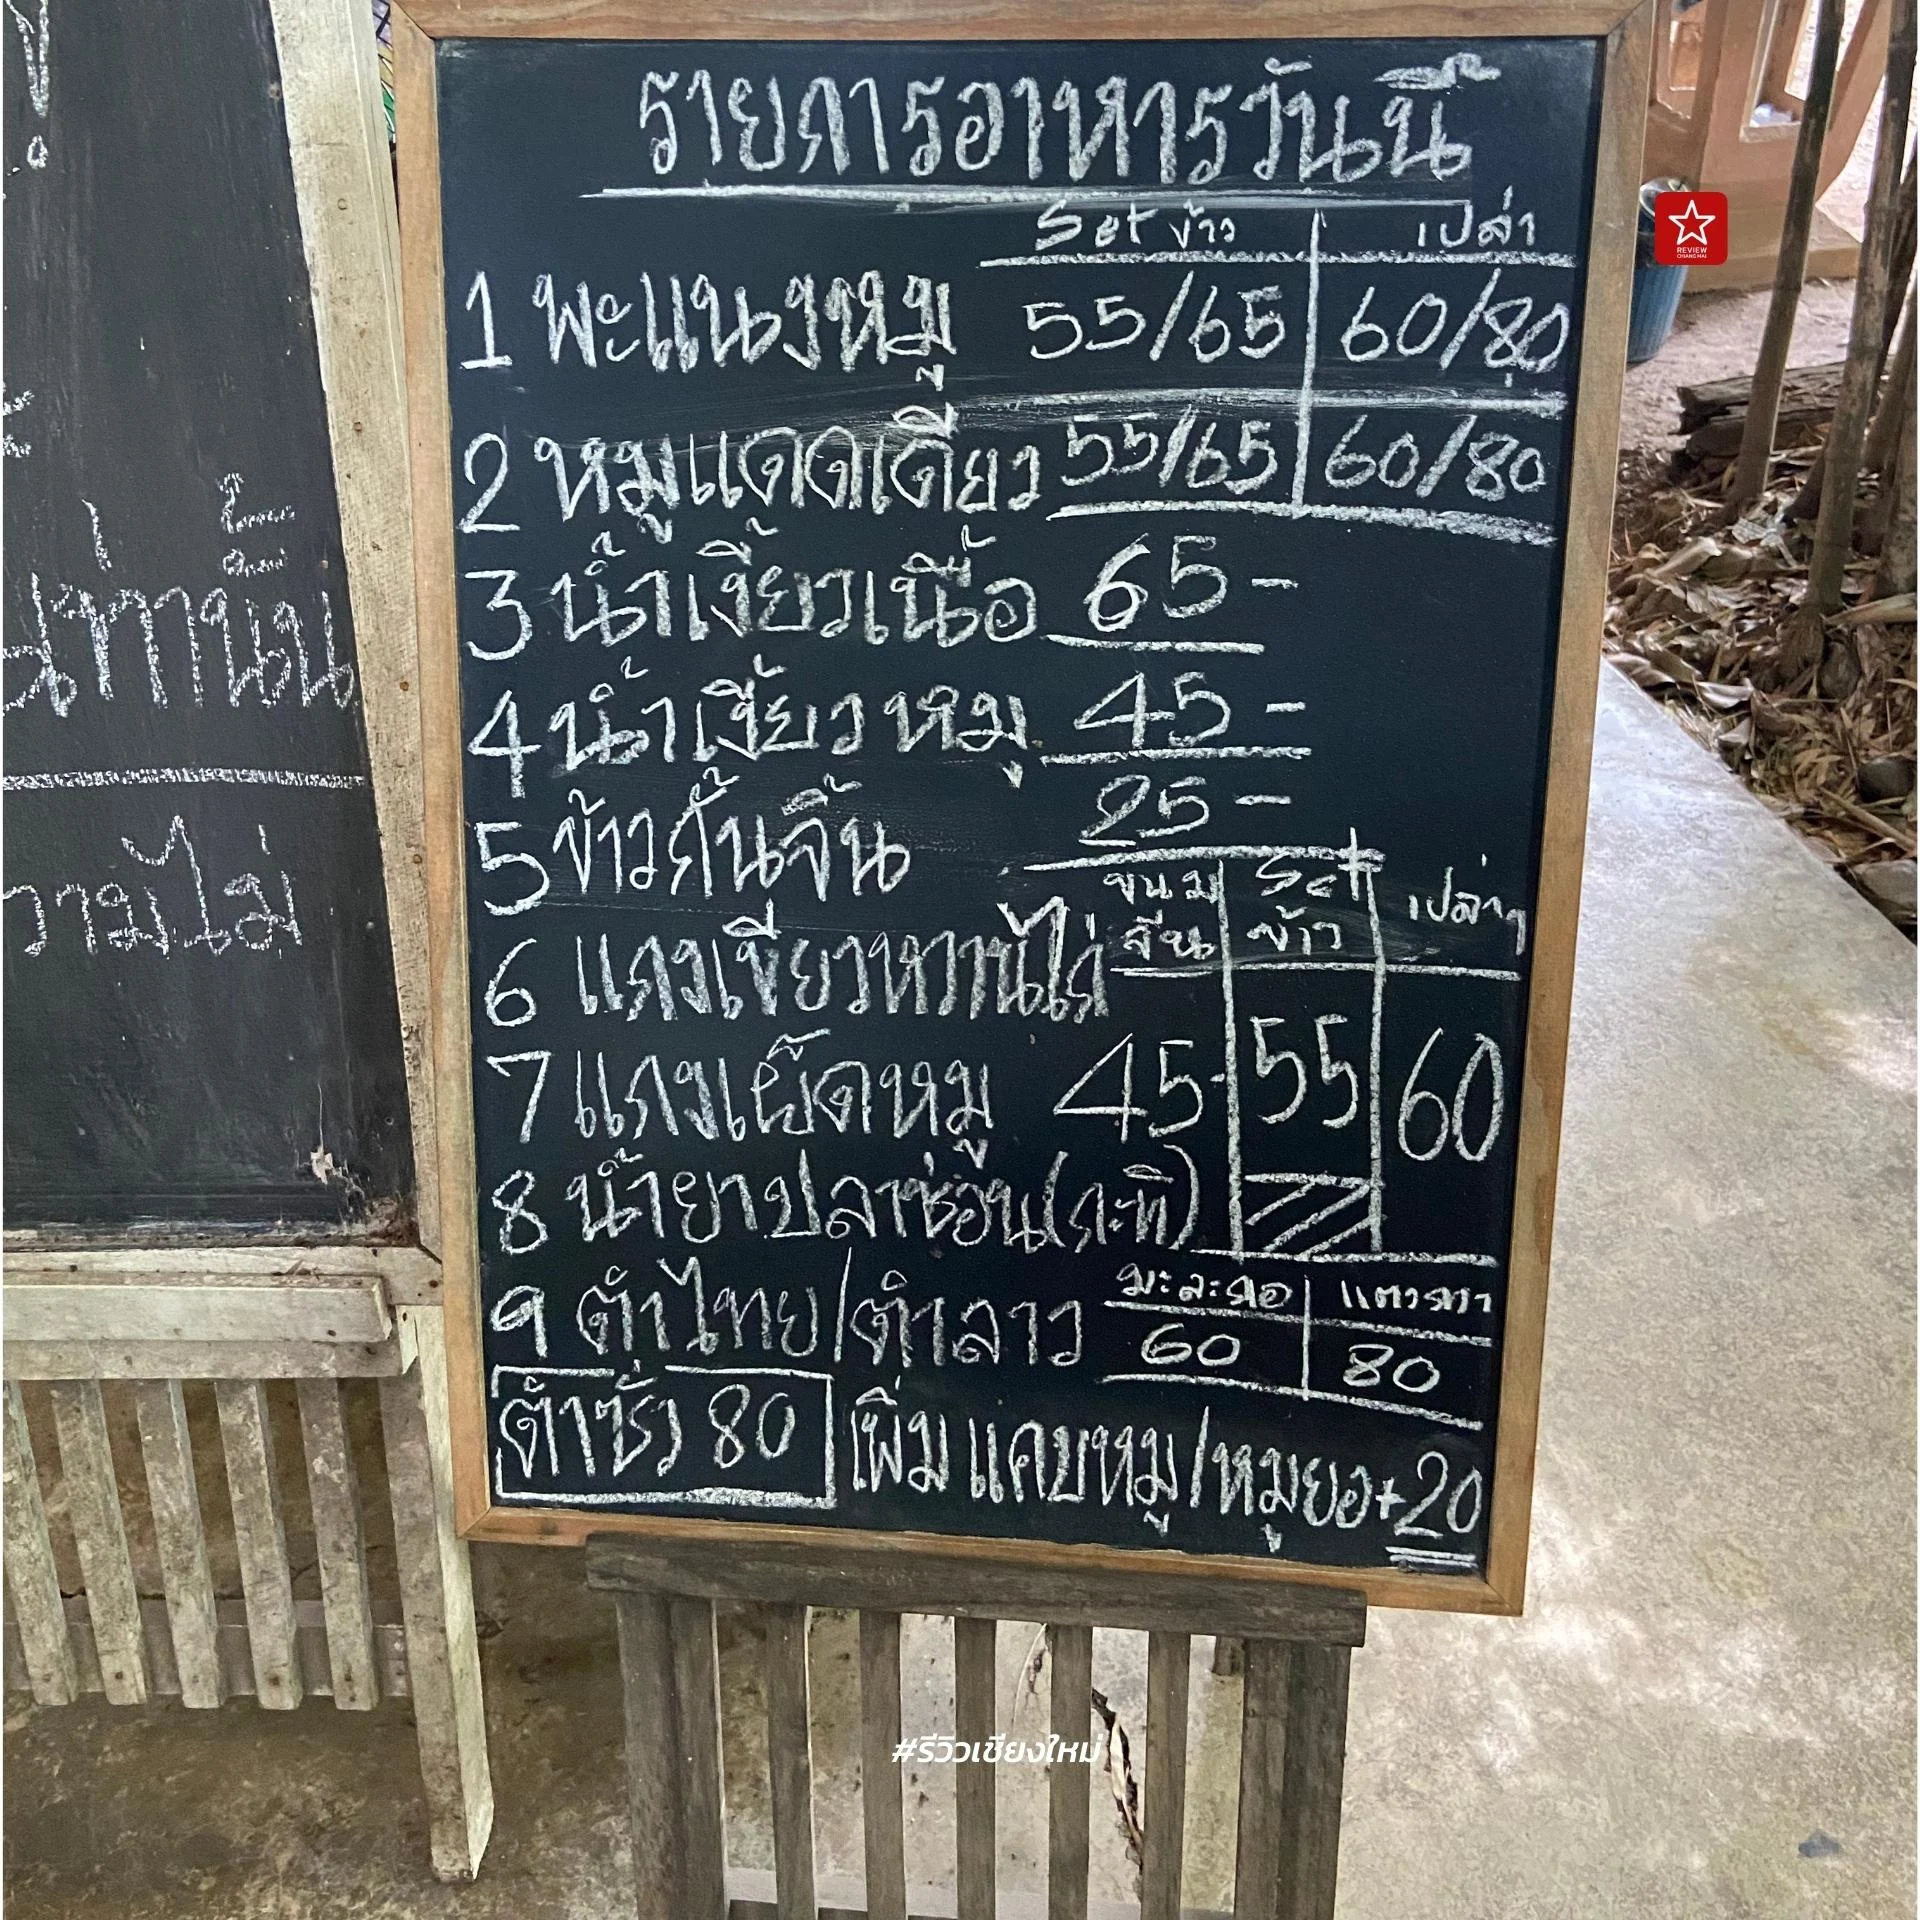 รายการอาหารวันนี้
Set ข้าว เปล่า
1 พะแนงหมู 55/65 60/80
2 หมูแดดเดียว 55/65 60/80
3 น้ำเงี้ยวเนื้อ 65-
4 น้ำเงี้ยวหมู 45-
5 ข้าวกั้นจิ้น 25-
ขนมจีน Set ข้าว เปล่าๆ
6 แกงเขียวหวานไก่
7 แกงเผ็ดหมู 45- 55 60
8 น้ำยาปลาช่อน(กะทิ)
มะละกอ แตงกวา
9 ตำไทย/ตำลาว 60 80
ตำซั่ว 80 เพิ่ม แคบหมู/หมูยอ+20
ความไม่
REVIEW
CHIANG MAI
#รีวิวเชียงใหม่